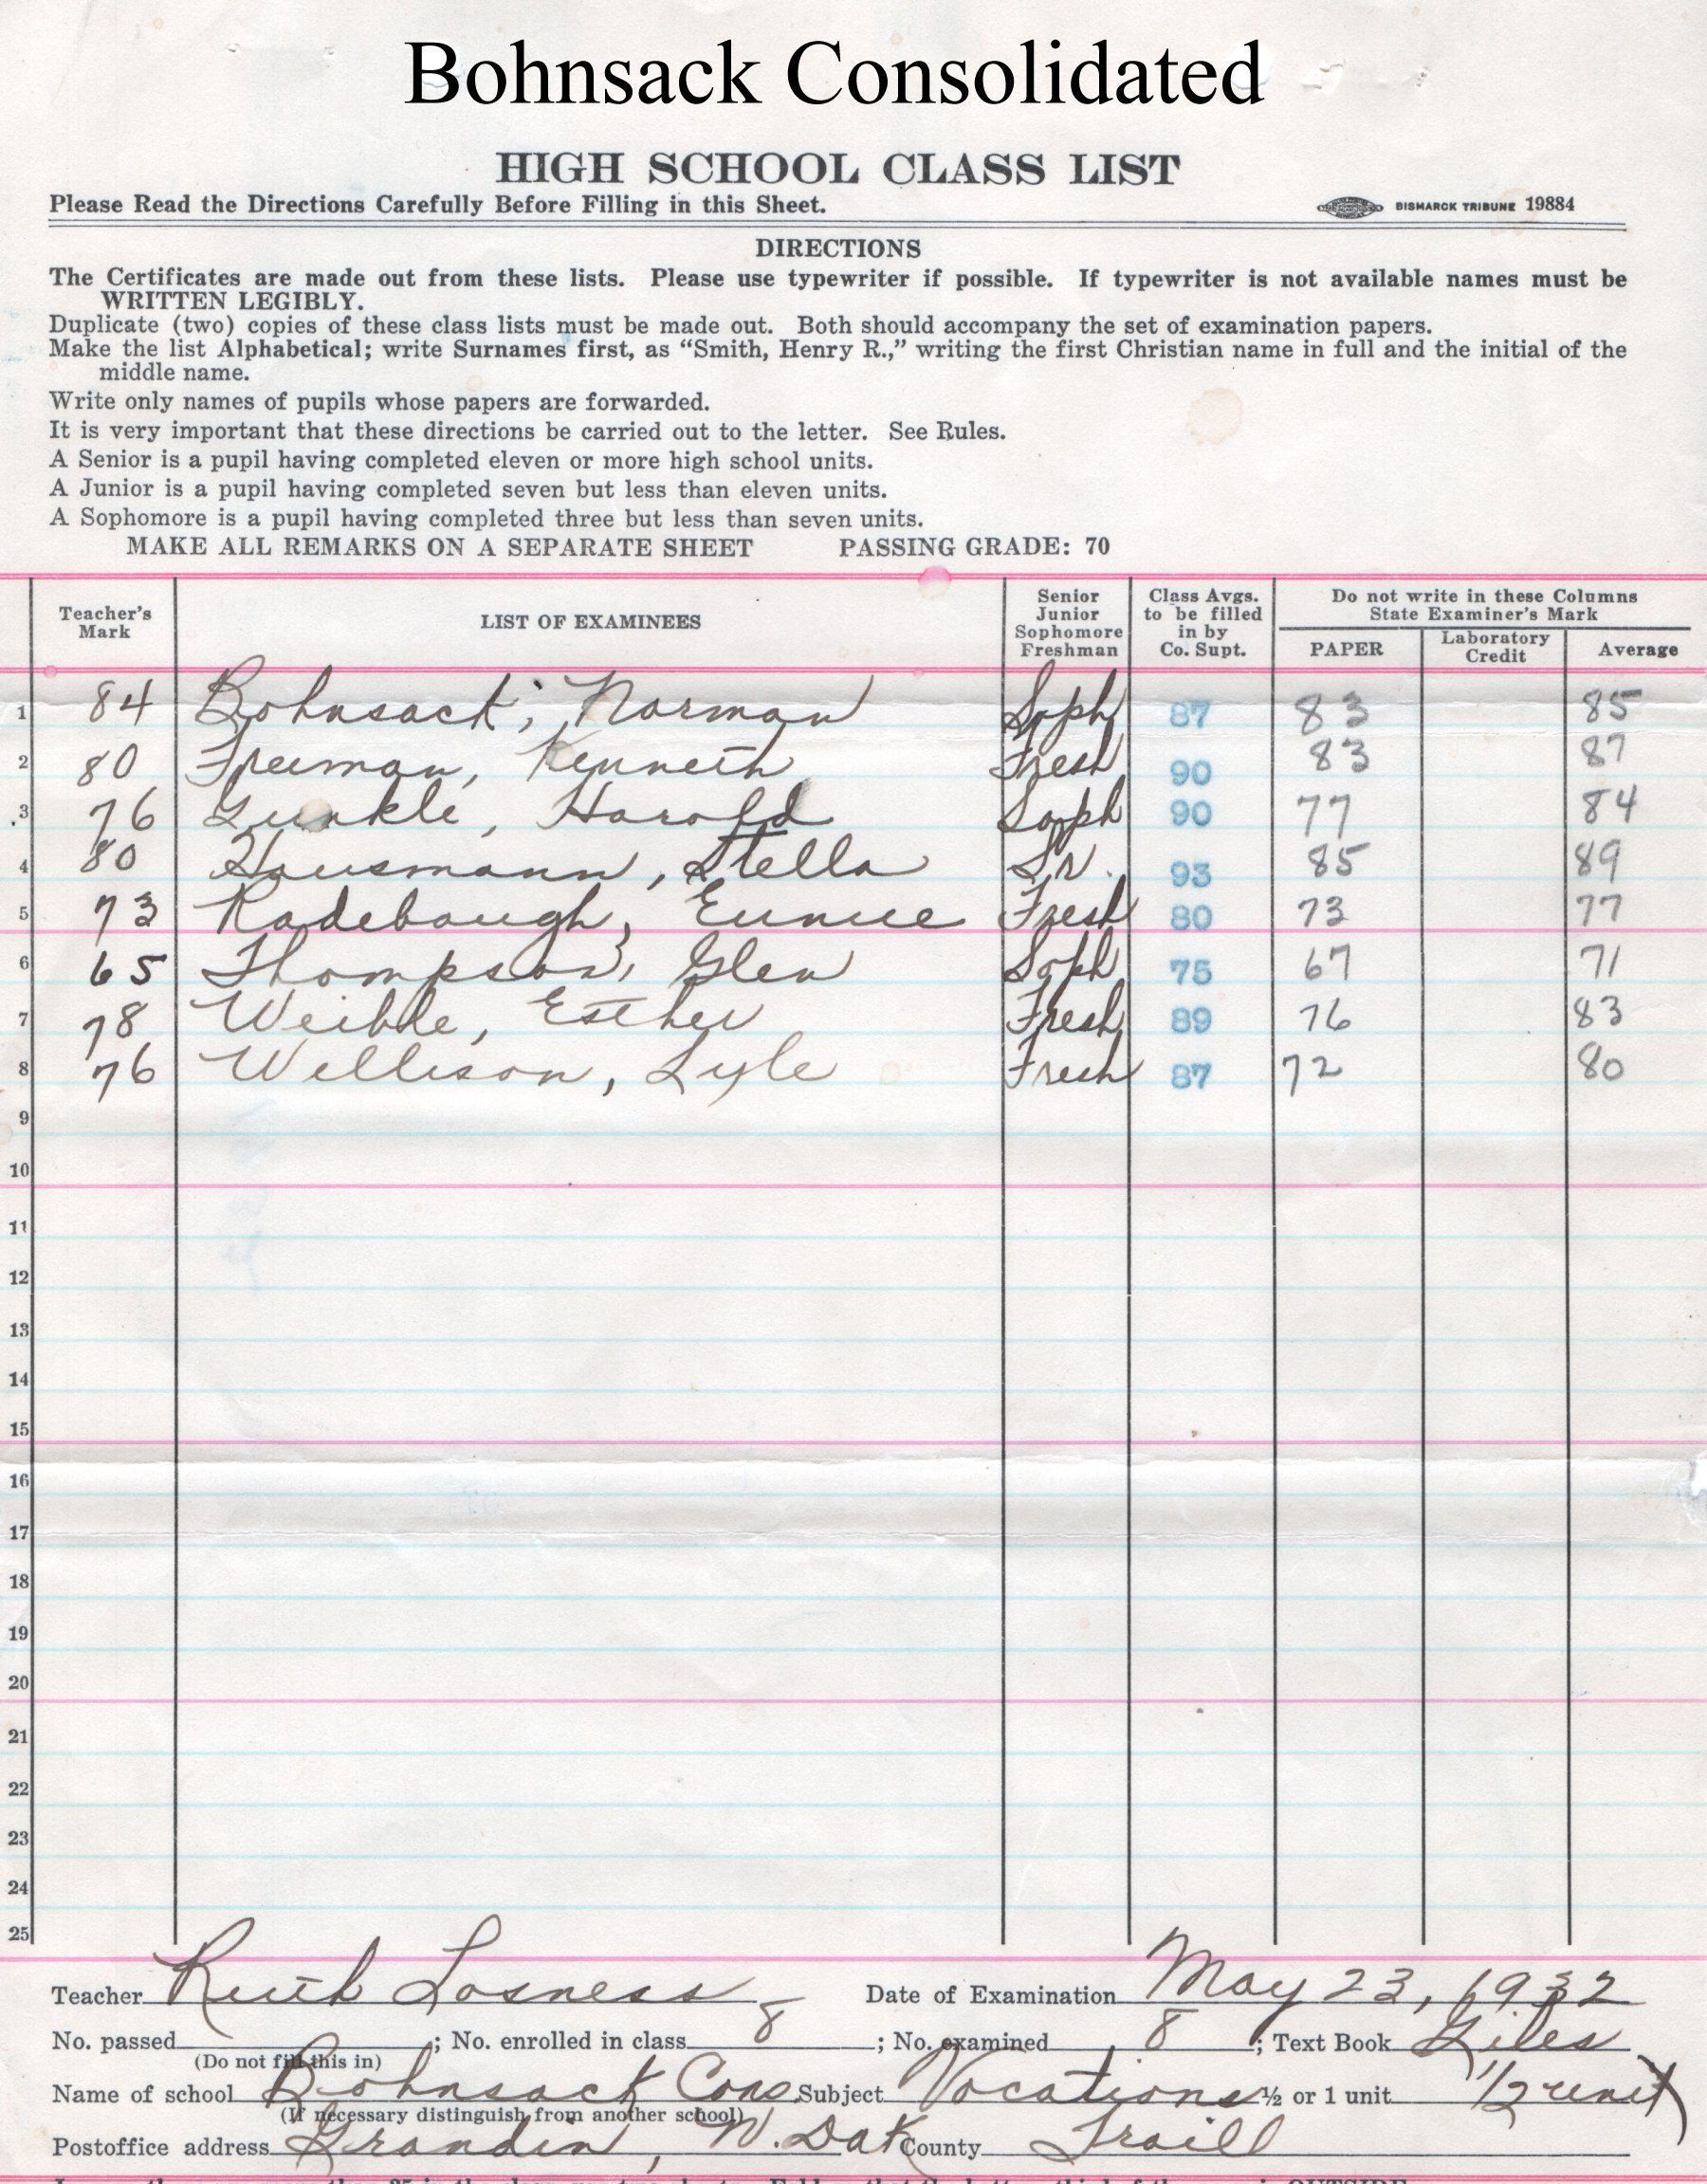 Bohnsack Consolidated
HIGH SCHOOL CLASS LIST
Please Read the Directions Carefully Before Filling in this Sheet. BISMARCK TRIBUNE 19884
DIRECTIONS
The Certificates are made out from these lists. Please use typewriter if possible. If typewriter is not available names must be
WRITTEN LEGIBLY.
Duplicate (two) copies of these class lists must be made out. Both should accompany the set of examination papers.
Make the list Alphabetical; write Surnames first, as “Smith, Henry R.,” writing the first Christian name in full and the initial of the
middle name.
Write only names of pupils whose papers are forwarded.
It is very important that these directions be carried out to the letter. See Rules.
A Senior is a pupil having completed eleven or more high school units.
A Junior is a pupil having completed seven but less than eleven units.
A Sophomore is a pupil having completed three but less than seven units.
MAKE ALL REMARKS ON A SEPARATE SHEET PASSING GRADE: 70
Teacher's Mark LIST OF EXAMINEES Senior Junior Sophomore Freshman Class Avgs. to be filled in by Co. Supt. Do not write in these Columns State Examiner's Mark PAPER Laboratory Credit Average
1 84 Bohnsack, Norman Soph 87 83 85
2 80 Freeman, Kenneth Fresh 90 83 87
3 76 Gunkle, Harold Soph 90 77 84
4 80 Hausmann, Stella Sr. 93 85 89
5 73 Radebaugh, Eunice Fresh 80 73 77
6 65 Thompson, Glen Soph 75 67 71
7 78 Weible, Esther Fresh 89 76 83
8 76 Wellison, Lyle Fresh 87 72 80
9
10
11
12
13
14
15
16
17
18
19
20
21
22
23
24
25
Teacher Ruth Losness Date of Examination May 23, 1932
No. passed ; No. enrolled in class 8 ; No. examined 8 ; Text Book Giles
(Do not fill this in)
Name of school Bohnsack Cons. Subject Vocations ½ or 1 unit 1/2 unit
(If necessary distinguish from another school)
Postoffice address Grandin, N. Dak County Traill